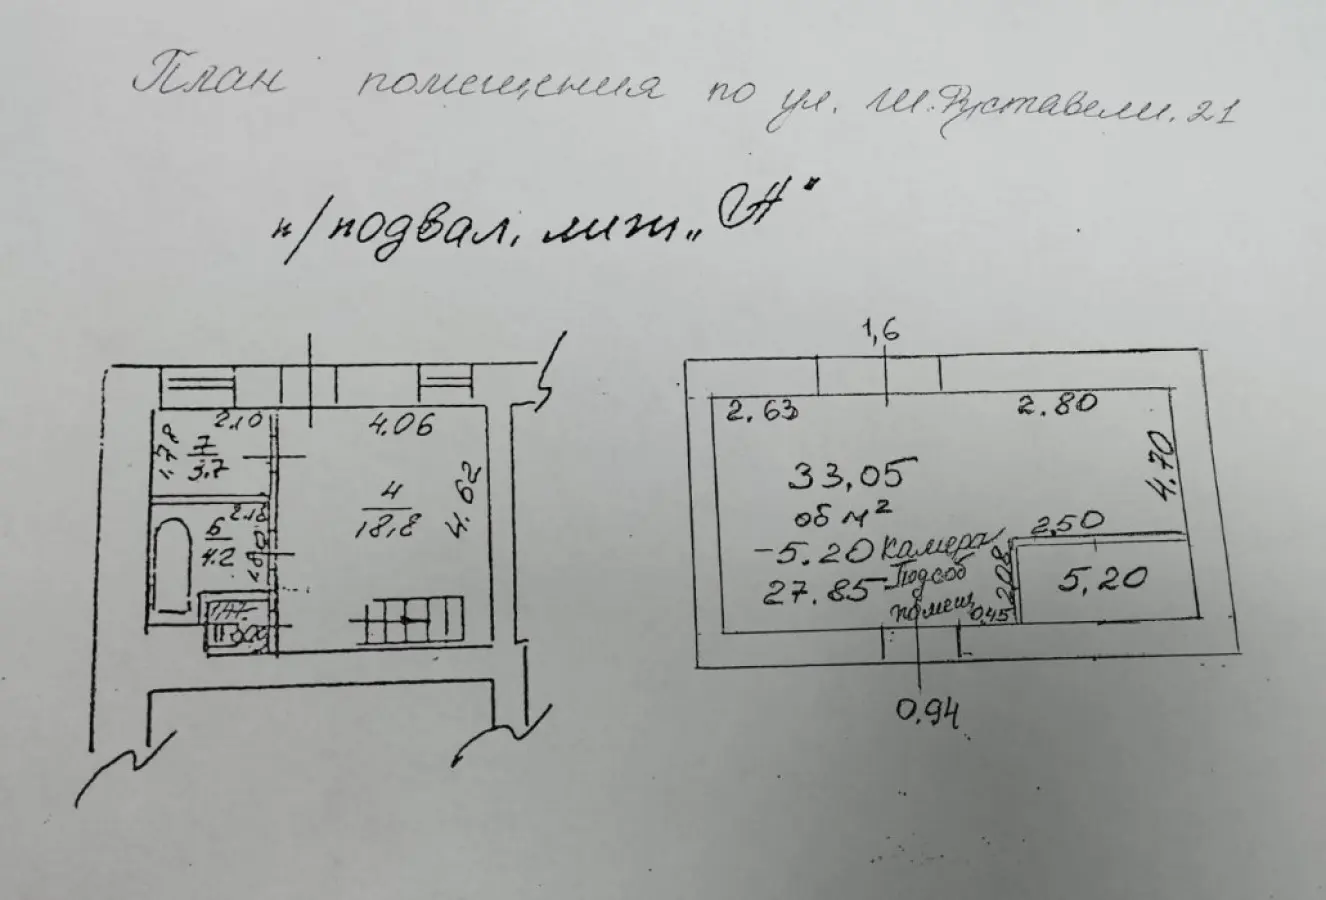 План помещения по ул. Ш.Руставели.21
п/подвал, лит „А"
2.10
1.78
7
3.7
4.06
4
18,8
4.62
6
4.2
2.18
1,6
2.63
2.80
4.70
33,05
об м²
-5.20 камера
27.85 Подсоб
помещ
2.50
2.08
5,20
0,45
0.94